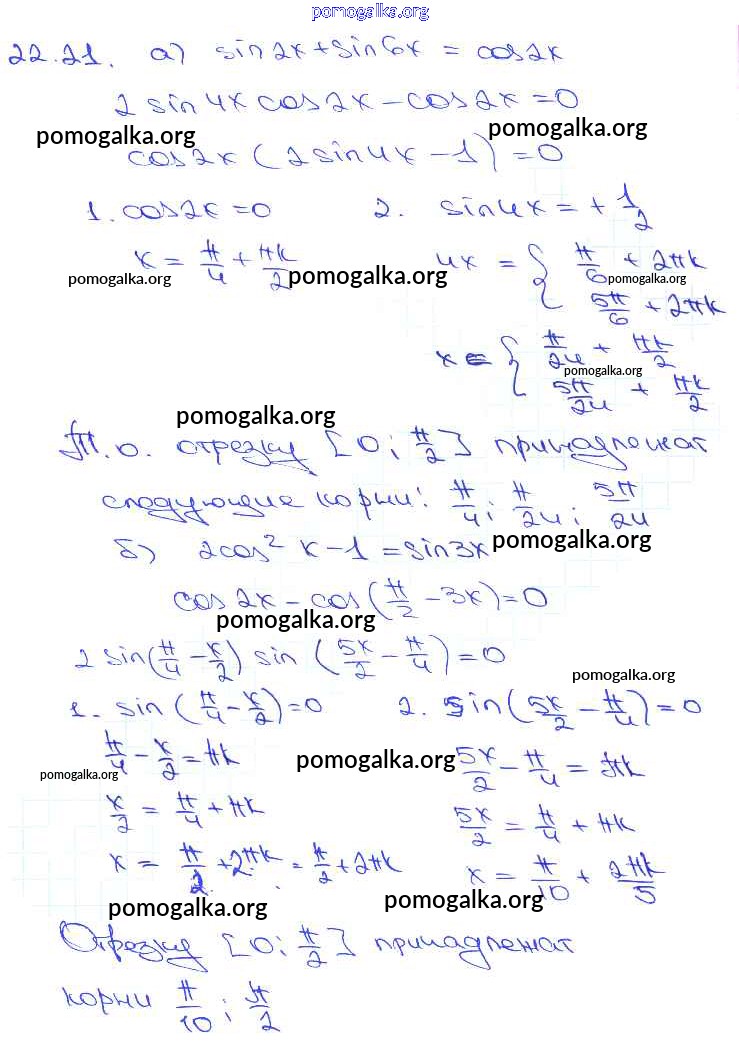 pomogalka.org
22.21. а) sin2x + sin6x = cos2x
2 sin4x cos2x - cos2x = 0
pomogalka.org pomogalka.org
cos2x (2sin4x - 1) = 0
1. cos2x = 0 2. sin4x = + 1/2
x = π/4 + πk/2 4x = { π/6 + 2πk
pomogalka.org pomogalka.org pomogalka.org
5π/6 + 2πk
x = { π/24 + πk/2
pomogalka.org
5π/24 + πk/2
pomogalka.org
Т.о. отрезку [0; π/2] принадлежат
следующие корни: π/4; π/24; 5π/24
б) 2cos² x - 1 = sin3x pomogalka.org
cos2x - cos(π/2 - 3x) = 0
pomogalka.org
2 sin(π/4 - x/2) sin (5x/2 - π/4) = 0
pomogalka.org
1. sin (π/4 - x/2) = 0 2. sin(5x/2 - π/4) = 0
π/4 - x/2 = πk 5x/2 - π/4 = πk
pomogalka.org pomogalka.org
x/2 = π/4 + πk 5x/2 = π/4 + πk
x = π/2 + 2πk = π/2 + 2πk x = π/10 + 2πk/5
pomogalka.org pomogalka.org
Отрезку [0; π/2] принадлежат
корни π/10; π/2